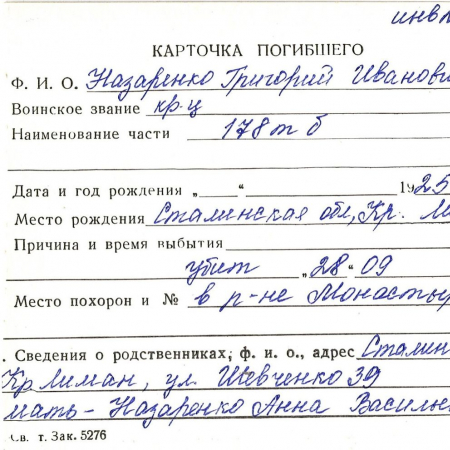 инвл
КАРТОЧКА ПОГИБШЕГО
Ф. И. О. Назаренко Григорий Иванови
Воинское звание кр-ц
Наименование части 178 т б
Дата и год рождения „ “ 1925
Место рождения Сталинская обл, Кр. Ли
Причина и время выбытия
убит „28“ 09
Место похорон и № в р-не Монастыр
. Сведения о родственниках, ф. и. о., адрес Сталин
Кр Лиман, ул. Шевченко 39
мать - Назаренко Анна Василь
Св. т. Зак. 5276